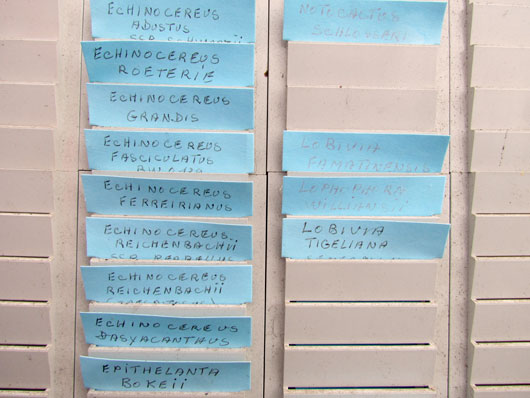 ECHINOCEREUS
ADUSTUS
ECHINOCEREUS
ROETERIE
ECHINOCEREUS
GRANDIS
ECHINOCEREUS
FASCICULATUS
ECHINOCEREUS
FERREIRIANUS
ECHINOCEREUS
REICHENBACHii
ECHINOCEREUS
REICHENBACHii
ECHINOCEREUS
DASYACANTHUS
EPITHELANTA
BOKEii
NOTOCACTUS
SCHLOSSERI
LOBIVIA
FAMATINENSIS
LOBIVIA
TIGELIANA